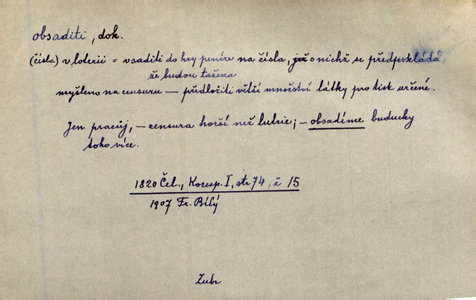 obsaditi, dok.
(čísla) v loterii = vsaditi do hry peníze na čísla, o nichž se předpokládá,
že budou tažena
myšleno na censuru – předložiti větší množství látky pro tisk určené.
Jen pracuj, – censura horší než lutrie; – obsadíme buducky
toho více.
1820 Čel., Koresp. I, str 74, č 15
1907 Fr. Bílý
Zubr